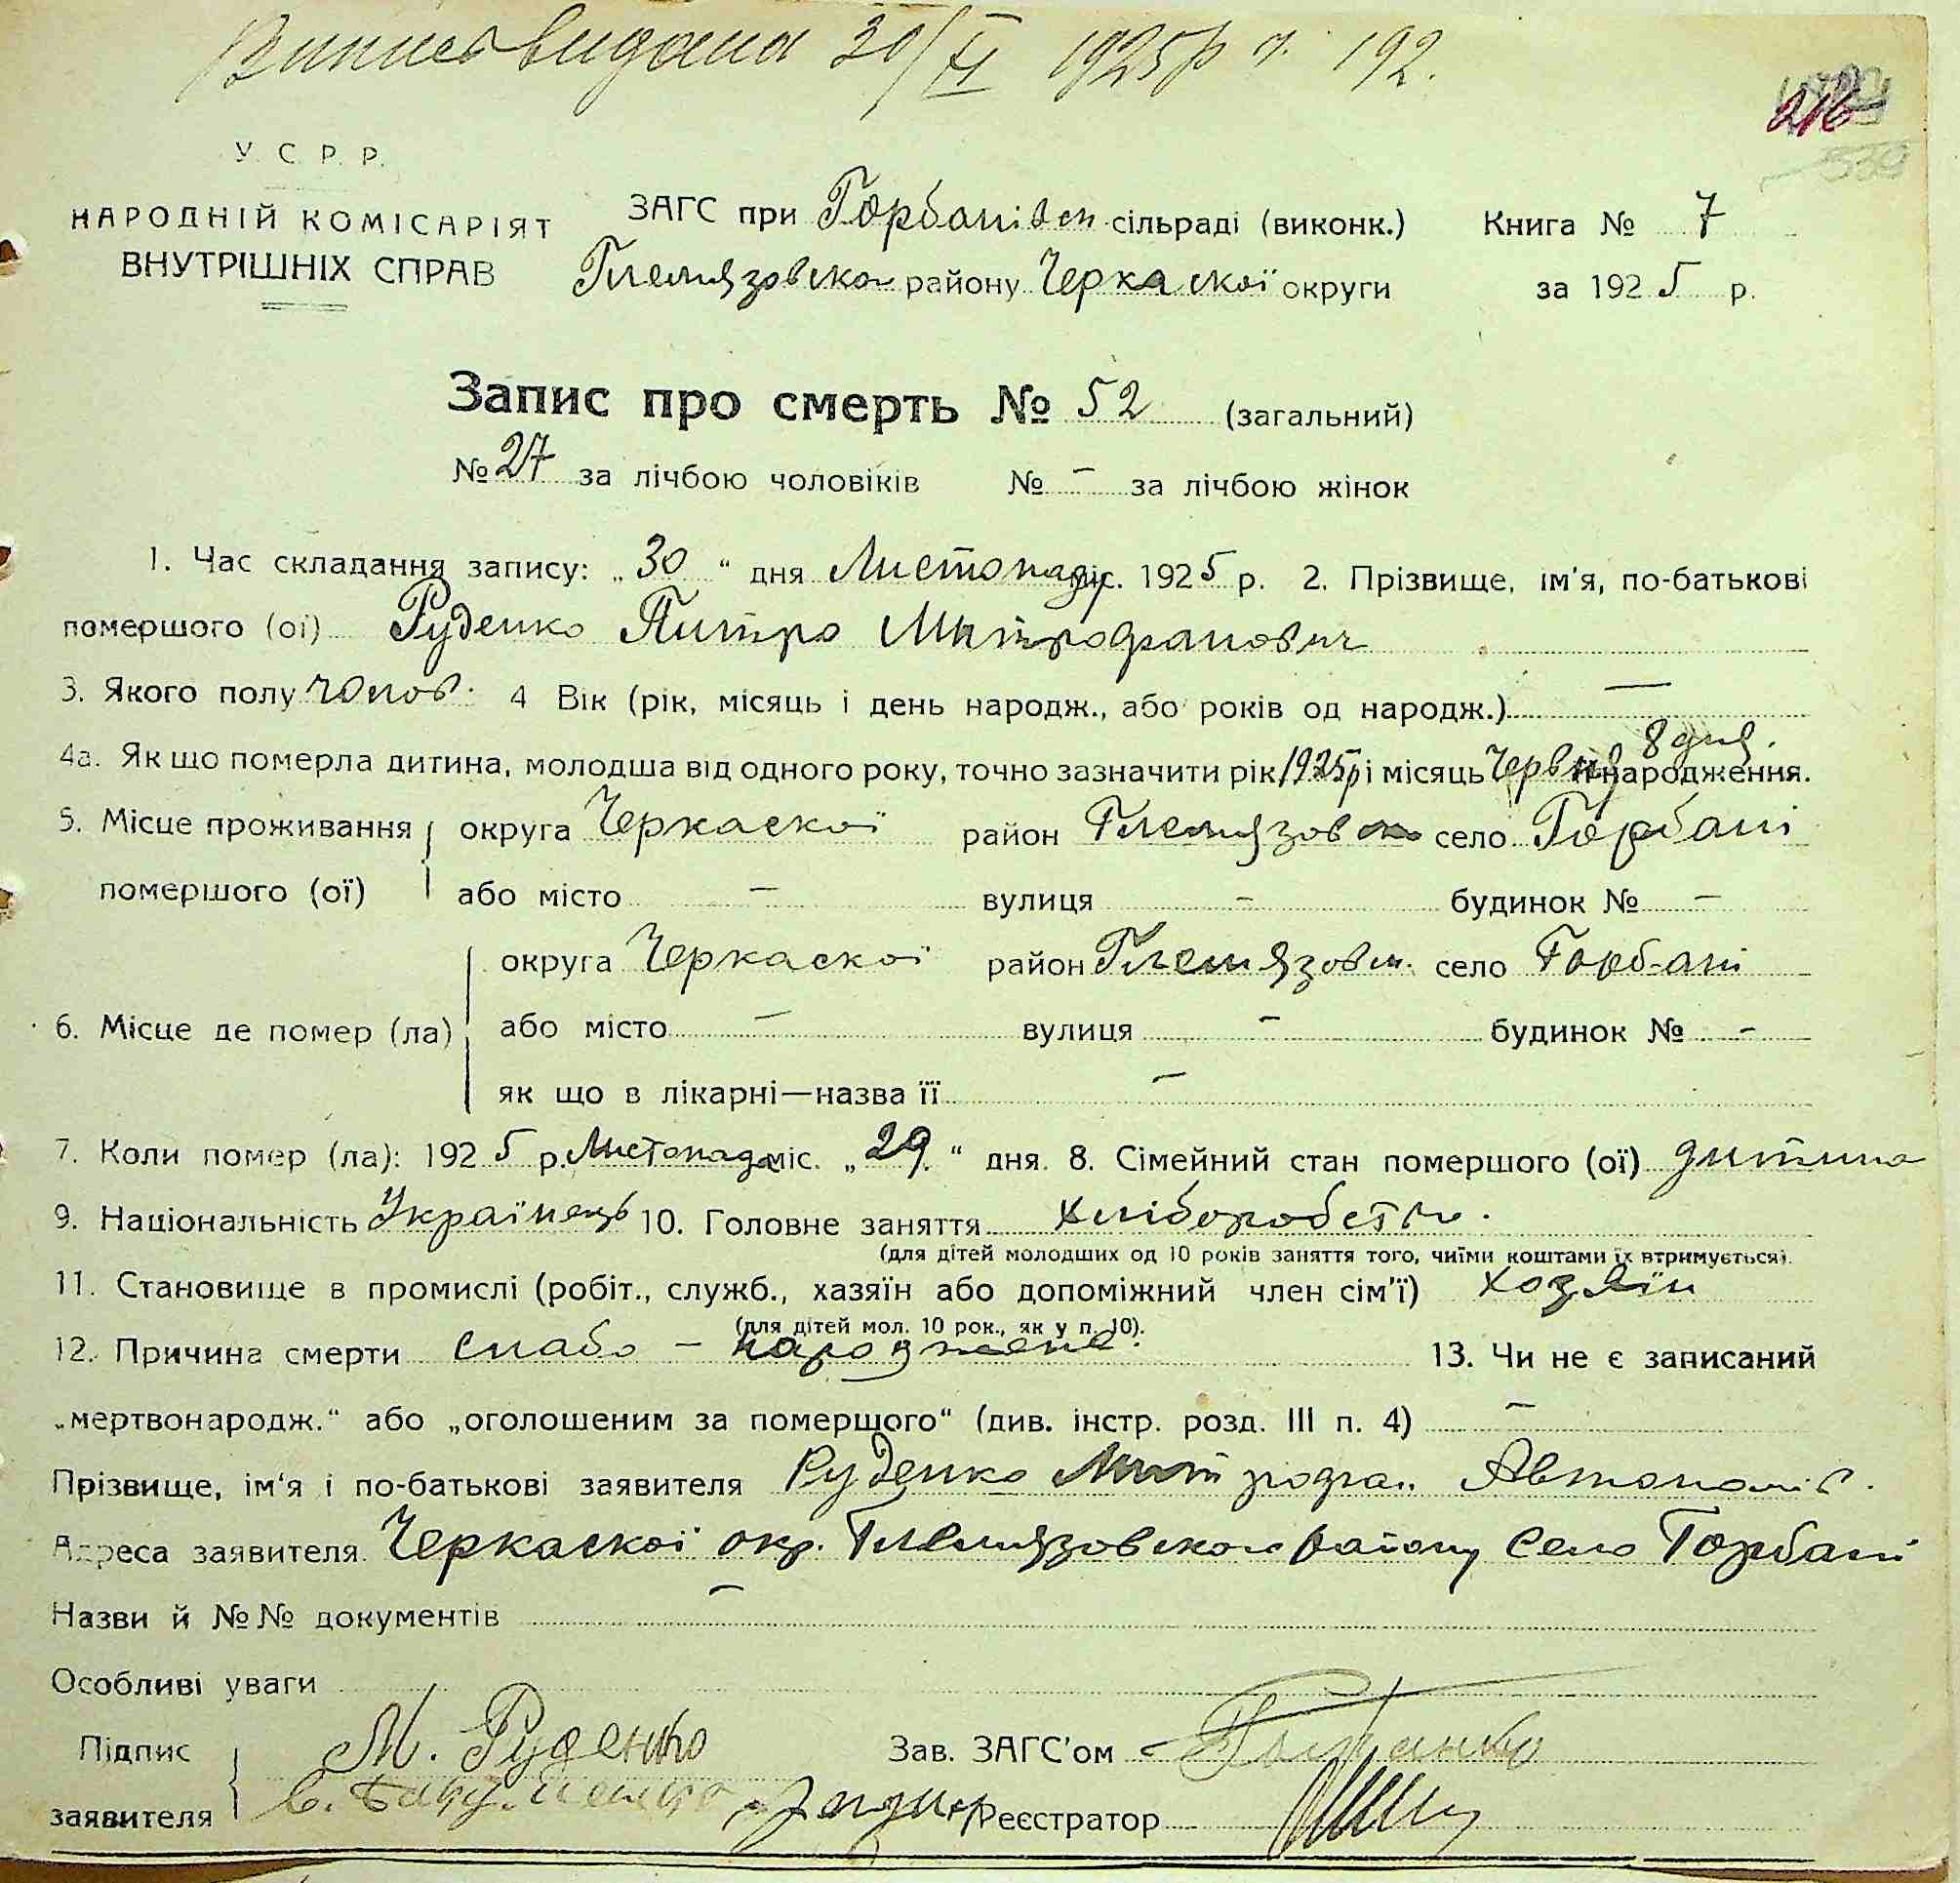 Випись видана 30/XI 1925р ч. 192.
216
530
У. С. Р. Р.
НАРОДНІЙ КОМІСАРІЯТ
ВНУТРІШНІХ СПРАВ
ЗАГС при Горбанівск. сільраді (виконк.)
Гельмязовсько району Черкаської округи
Книга № 7
за 1925 р.
Запис про смерть № 52 (загальний)
№ 27 за лічбою чоловіків № – за лічбою жінок
1. Час складання запису: „30“ дня Листопаду міс. 1925 р. 2. Прізвище, ім'я, по-батькові
помершого (ої) Руденко Питро Митрофанович
3. Якого полу чолов. 4 Вік (рік, місяць і день народж., або років од народж.) —
8 дня.
4а. Як що померла дитина, молодша від одного року, точно зазначити рік 1925р і місяць Червня її народження.
5. Місце проживання округа Черкаської район село Горбані
помершого (ої) або місто – вулиця – будинок № –
округа Черкаської район село Горбані
6. Місце де помер (ла) або місто – вулиця – будинок № –
як що в лікарні—назва її –
7. Коли помер (ла): 1925 р. Листопада міс. „29“ дня. 8. Сімейний стан помершого (ої) дитина
9. Національність Українець 10. Головне заняття хліборобство.
(для дітей молодших од 10 років заняття того, чиїми коштами їх втримується).
11. Становище в промислі (робіт., служб., хазяїн або допоміжний член сім'ї) хозяїн
(для дітей мол. 10 рок., як у п. 10).
12. Причина смерти слабо – народжене. 13. Чи не є записаний
„мертвонародж.“ або „оголошеним за померщого“ (див. інстр. розд. III п. 4) –
Прізвище, ім'я і по-батькові заявителя Руденко Митрофан Автономів.
Адреса заявителя Черкаскої окр. району Село Горбані
Назви й №№ документів –
Особливі уваги
Підпис М. Руденко Зав. ЗАГС'ом
заявителя Реєстратор